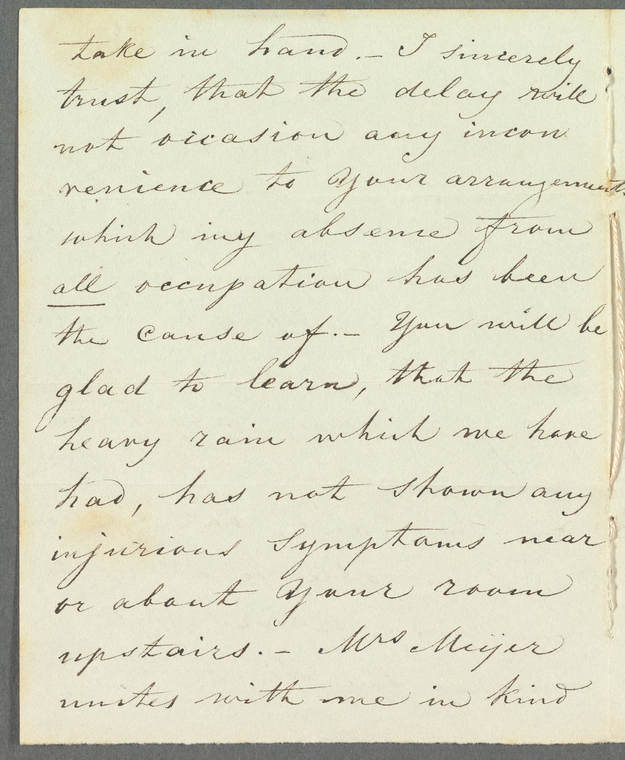 take in hand. – I sincerely
trust, that the delay will
not occasion any incon
venience to your arrangements
which my absence from
all occupation has been
the cause of. – You will be
glad to learn, that the
heavy rain which we have
had, has not shown any
injurious symptoms near
or about your room
upstairs. – Mrs Meijer
unites with me in kind